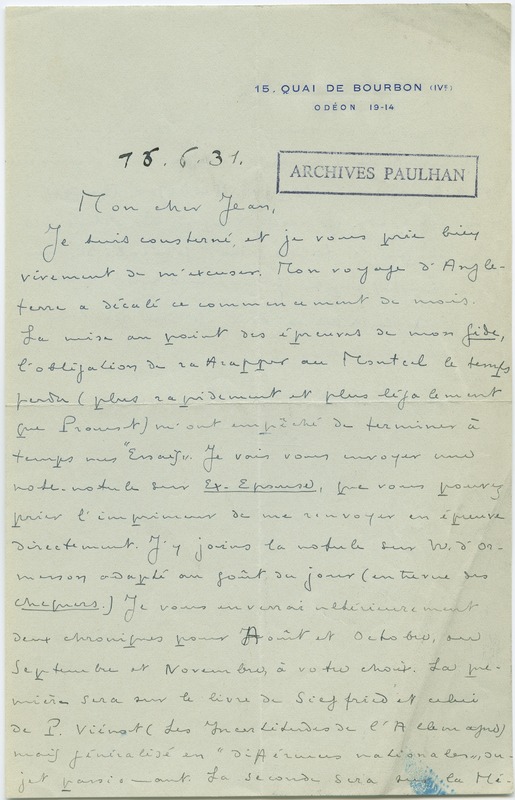 15. QUAI DE BOURBON (IVE)
ODÉON 19-14
15.6.31.
ARCHIVES PAULHAN
Mon cher Jean,
Je suis consterné, et je vous prie bien
vivement de m'excuser. Mon voyage d'Angle-
terre a décalé ce commencement de mois.
La mise au point des épreuves de mon Gide,
l'obligation de rattrapper au Montcel le temps
perdu (plus rapidement et plus légalement
que Proust) m'ont empêché de terminer à
temps mes "Essais". Je vais vous envoyer une
note-notule sur Ex-Epouse, que vous pouvez
prier l'imprimeur de me renvoyer en épreuve
directement. J'y joins la notule sur W. d'Or-
messon adapté au goût du jour (entrevue des
Chequers.) Je vous enverrai ultérieurement
deux chroniques pour Août et Octobre, ou
Septembre et Novembre, à votre choix. La pre-
mière sera sur le livre de Siegfried et celui
de P. Viénot (Les Incertitudes de l'Allemagne)
mais généralisé en "différences nationales", su-
jet passionnant. La seconde sera sur la Mé-